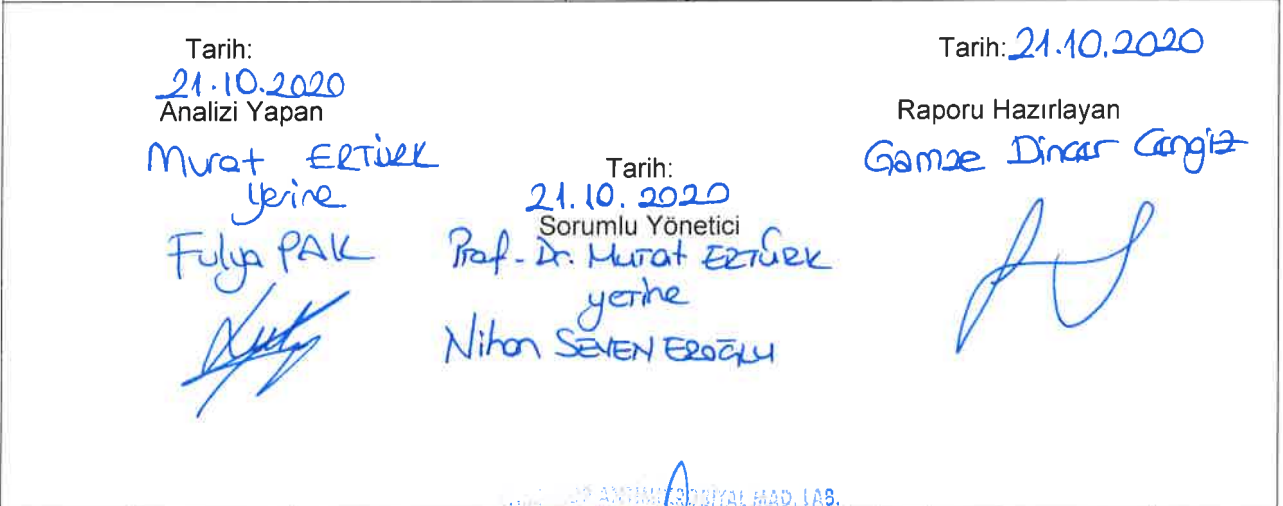 Tarih:
21.10.2020
Analizi Yapan
Murat ERTÜRK
Yerine
Fulya PAK
Tarih:
21.10.2020
Sorumlu Yönetici
Prof. Dr. Murat ERTÜRK
yerine
Nihan SEVEN EROĞLU
Tarih: 21.10.2020
Raporu Hazırlayan
Gamze Dincer Cengiz
ANTİMİKROBİYAL MAD. LAB.